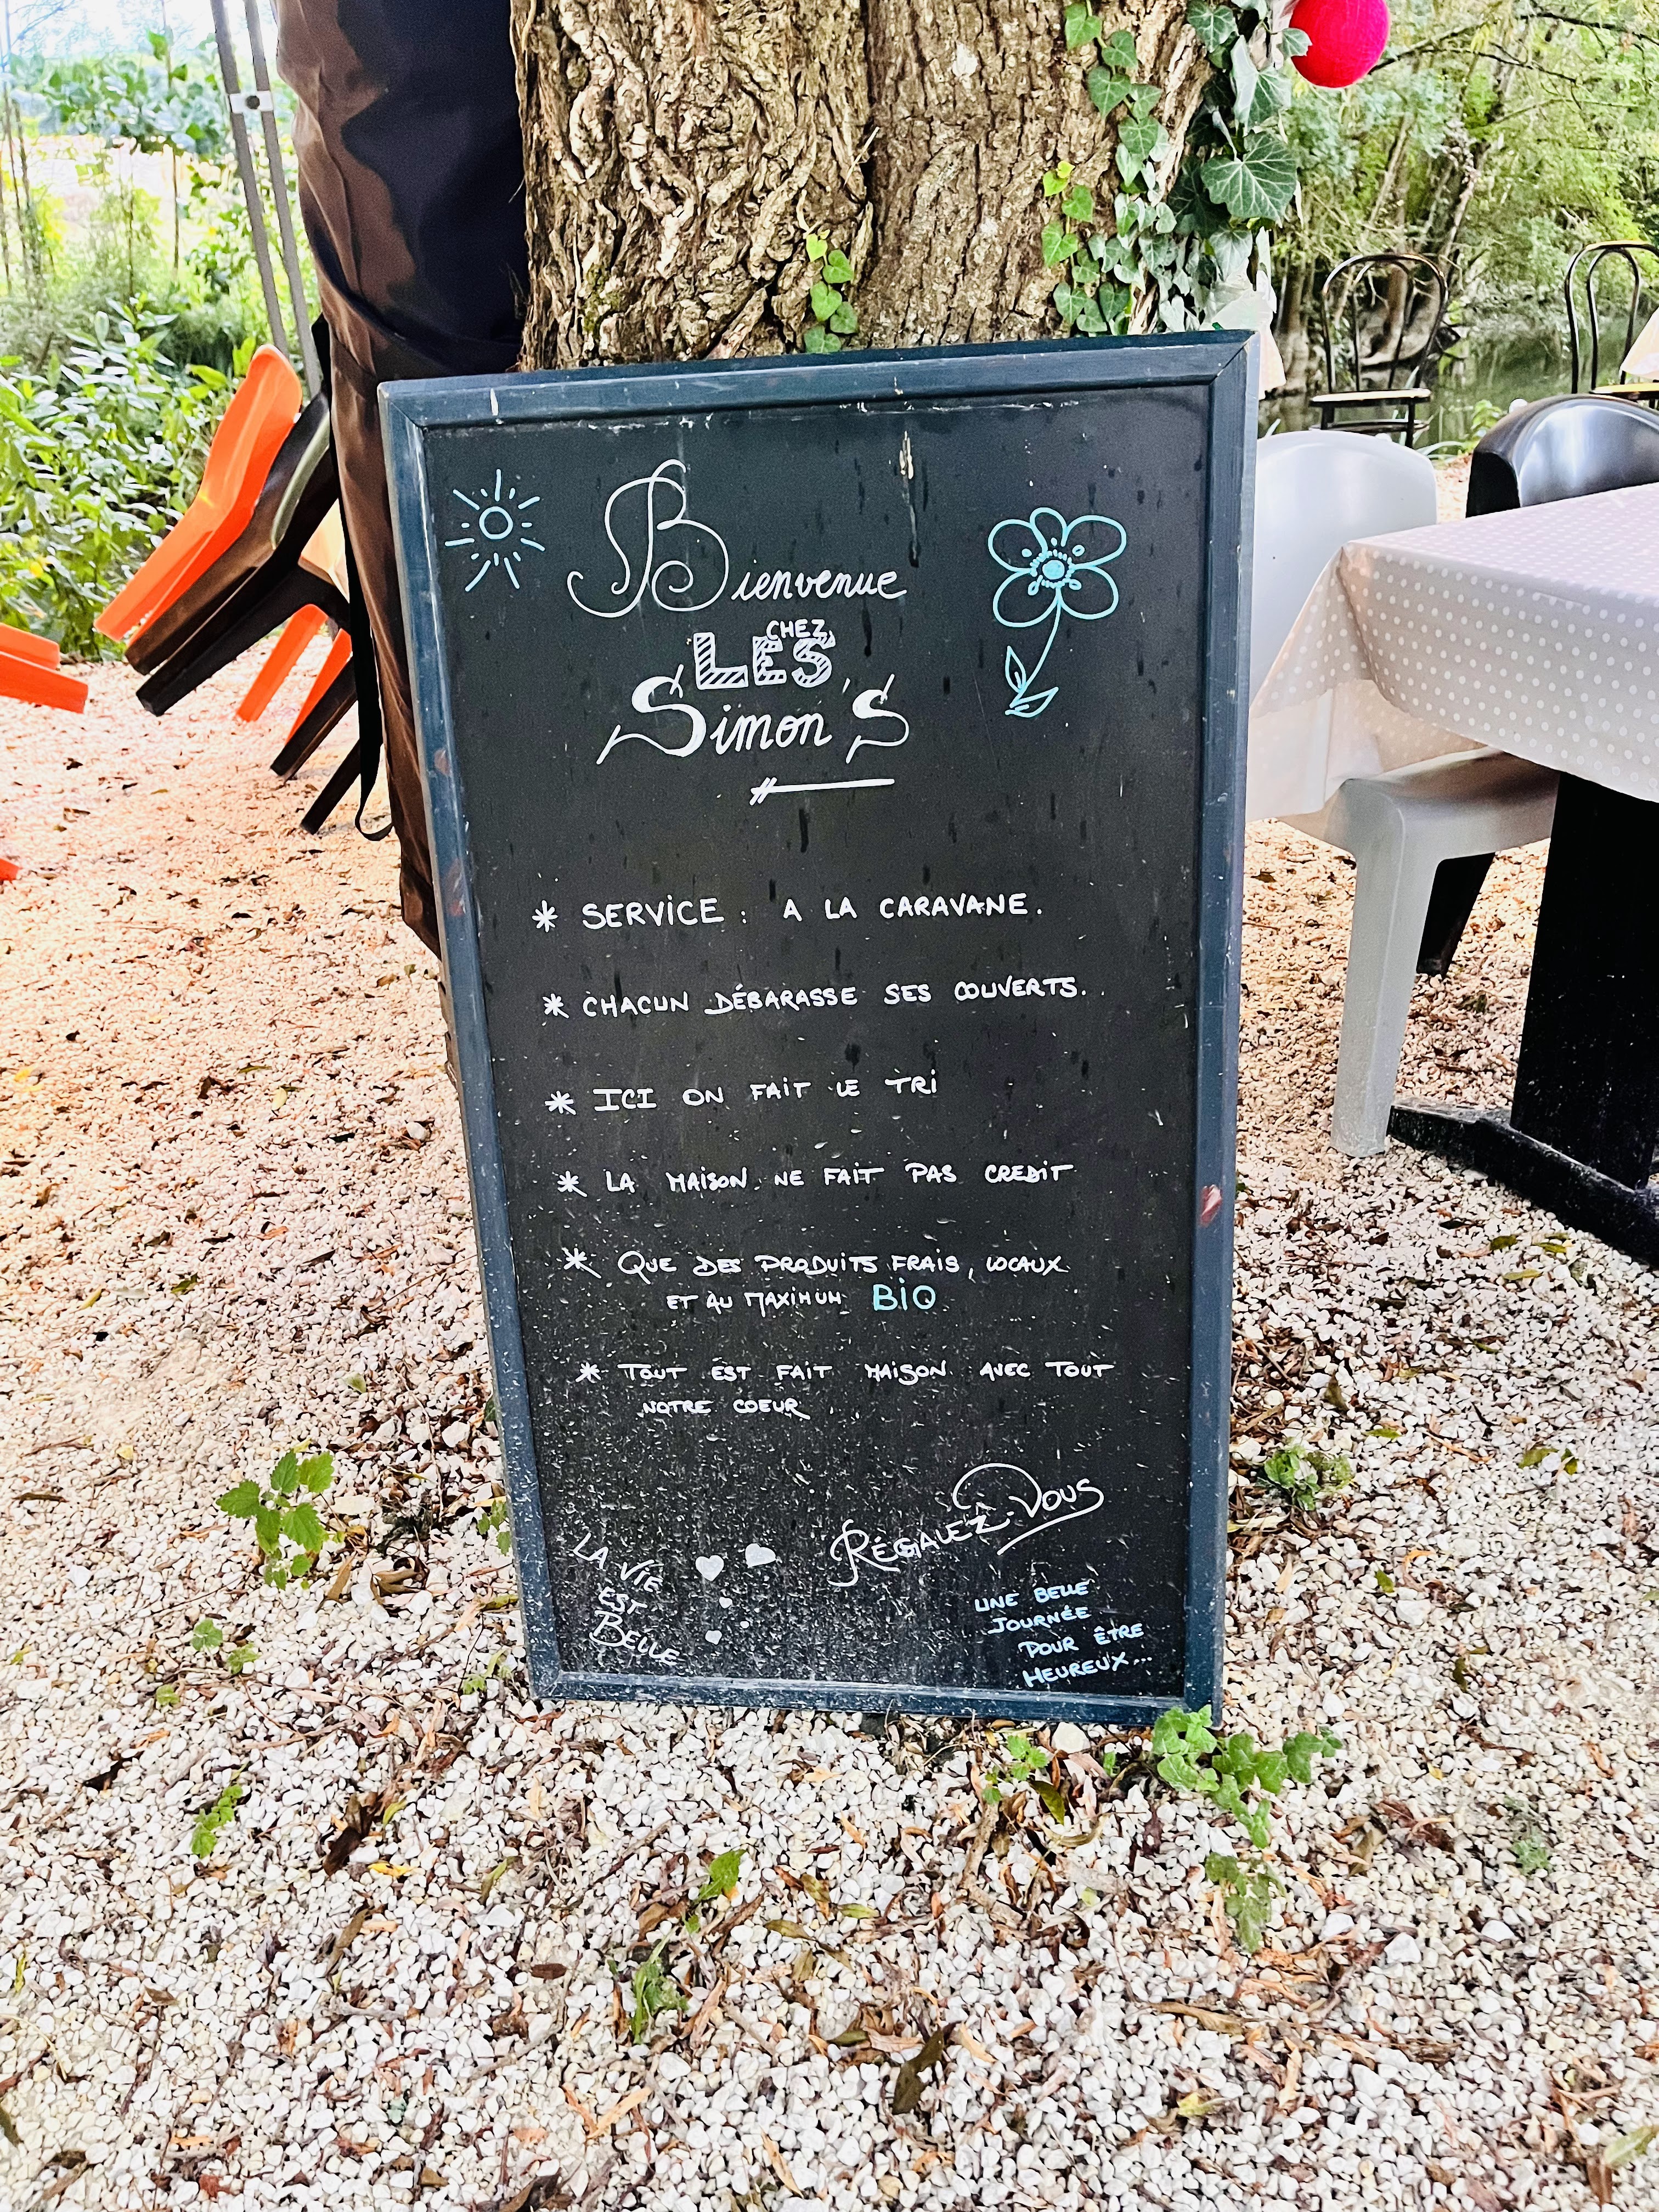 Bienvenue
CHEZ
LES
Simon's
* SERVICE : A LA CARAVANE.
* CHACUN DÉBARASSE SES COUVERTS.
* ICI ON FAIT LE TRI
* LA MAISON NE FAIT PAS CREDIT
* QUE DES PRODUITS FRAIS, LOCAUX
ET AU MAXIMUM BIO
* TOUT EST FAIT MAISON AVEC TOUT
NOTRE COEUR
RÉGALEZ-VOUS
LA VIE
EST
BELLE
UNE BELLE
JOURNÉE
POUR ÊTRE
HEUREUX...